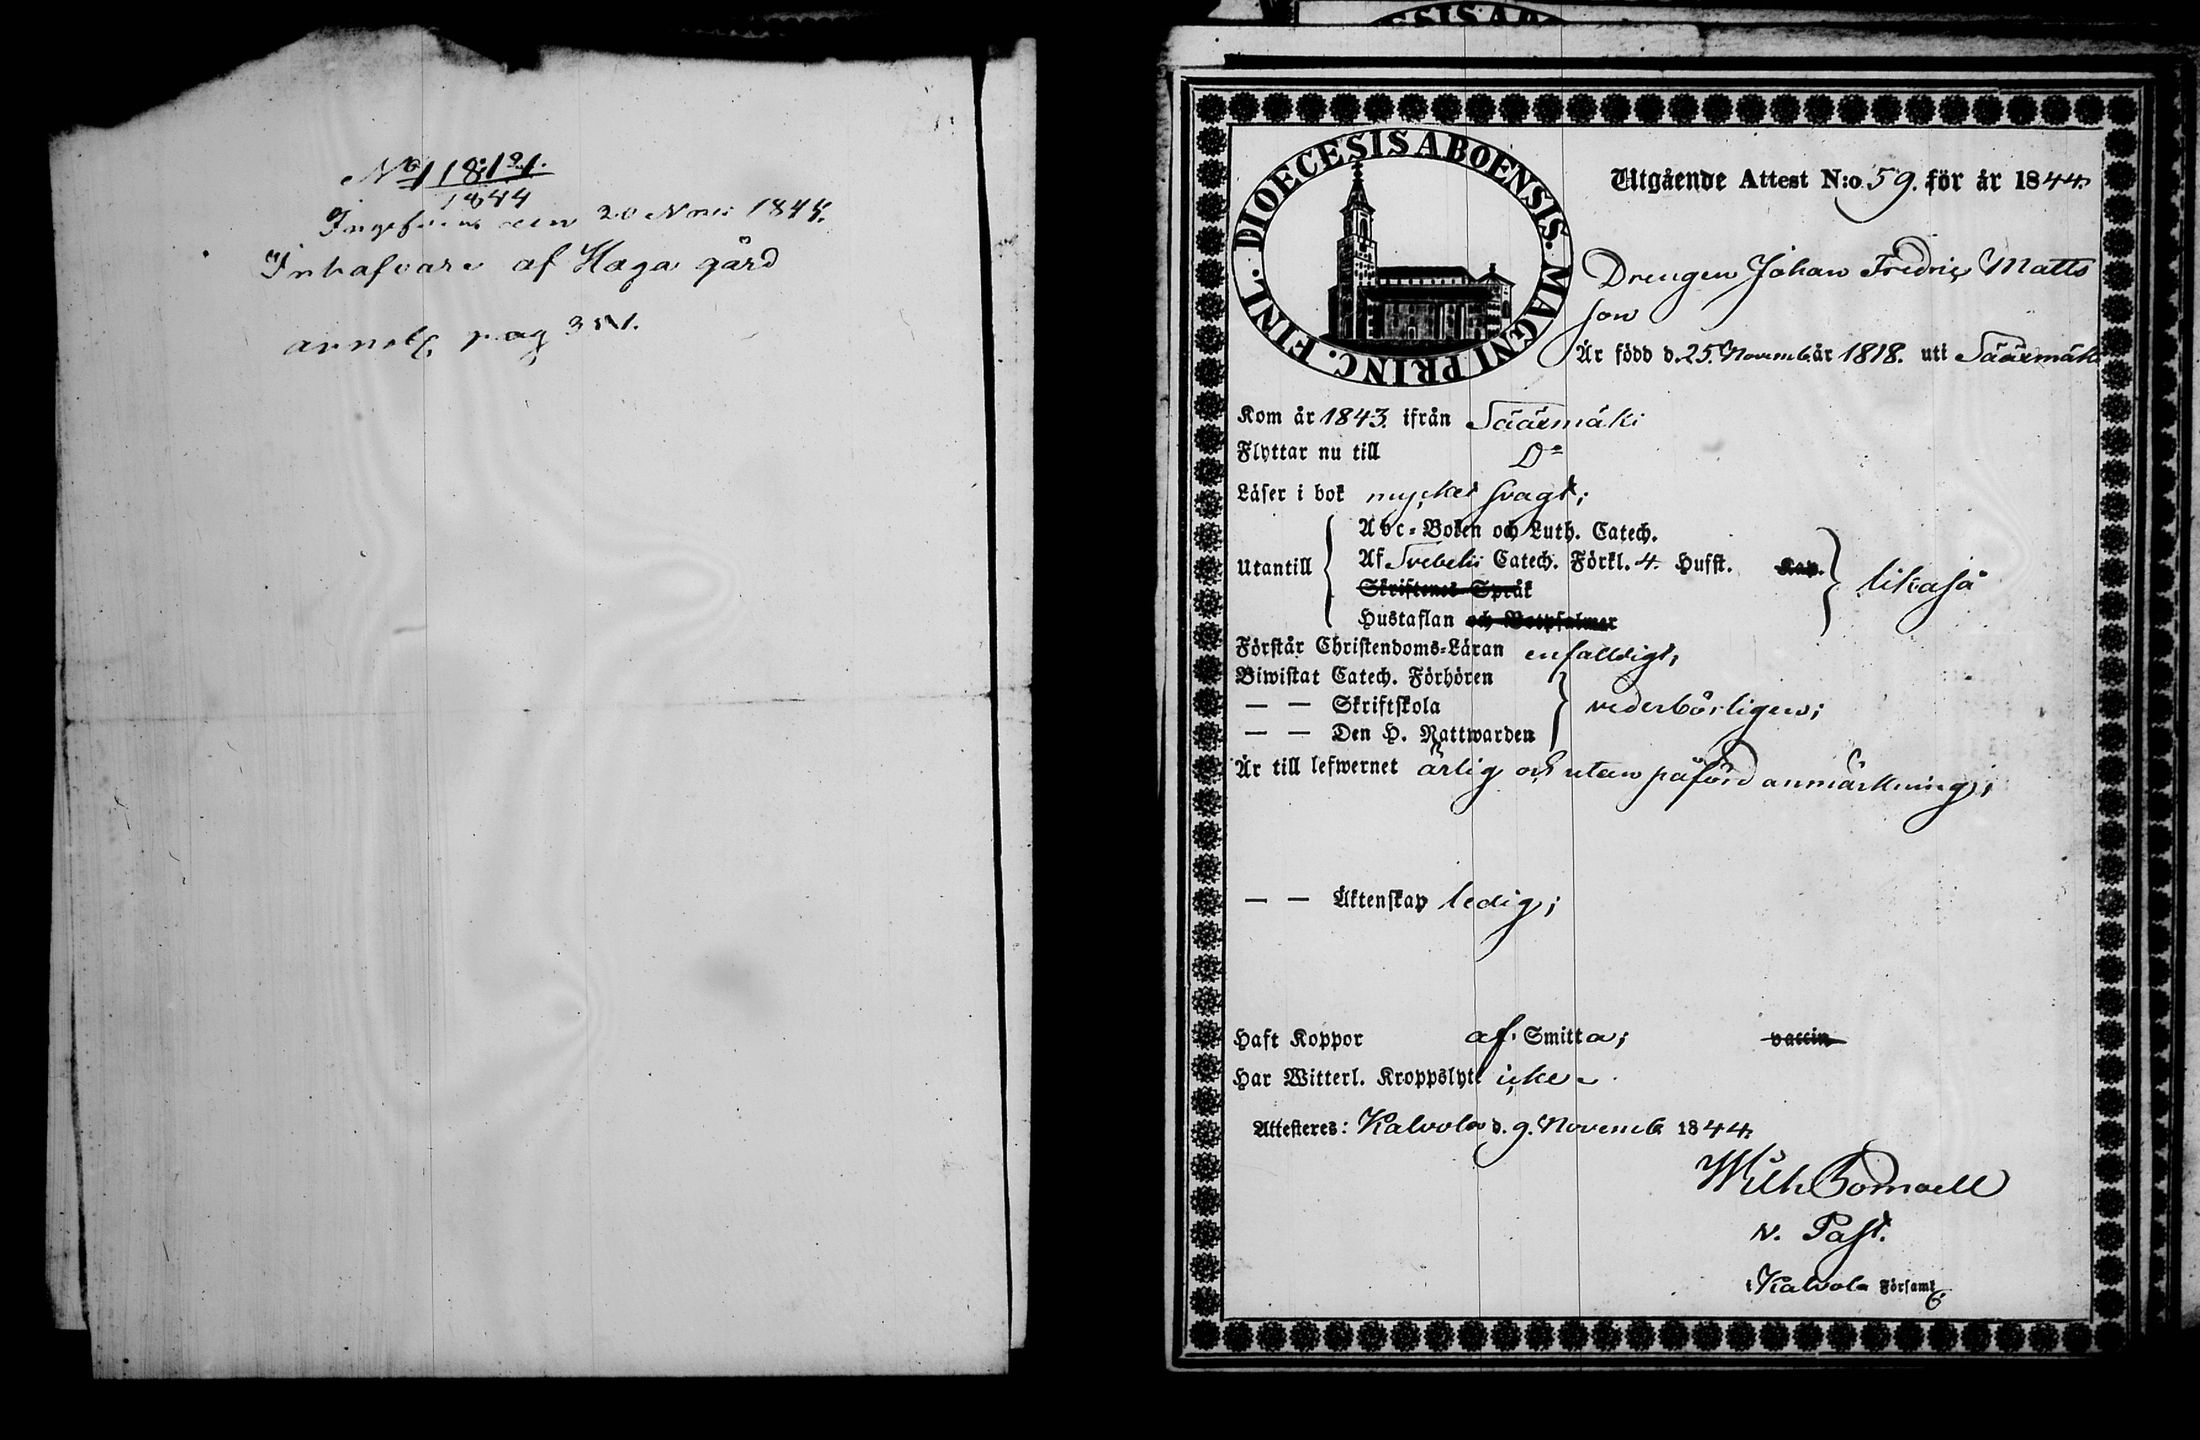 No 118.
1844
den 20 Nov: 1844.
Inhafvare af Haga gård
pag 351.
DIOECESIS ABOENSIS. MAGNI PRINC. FINL.
Utgående Attest N:o 59. för år 1844.
Drengen Johan Fredric Matts
son
Är född d. 25. Novemb. år 1818. uti Sääxmäki
Kom år 1843. ifrån Sääxmäki
Flyttar nu till Do
Läser i bok mycket svagt;
Utantill
Abc-Boken och Luth. Catech.
Af Svebelii Catech. Förkl. 4. Hufst. Kap.
Skriftenes Språk
Hustaflan och Botpsalmer
likaså
Förstår Christendoms-Läran enfalldigt;
Biwistat Catech. Förhören
— — Skriftskola
— — Den H. Nattwarden
vederbörligen;
Är till lefwernet ärlig och utan påförd anmärkning;
— — Äktenskap ledig;
Haft Koppor af Smitta; vaccin
Har Witterl. Kroppslyte icke
Attesteres: Kalvola d. 9. Novemb. 1844.
Wilh
v. Past.
i Kalvola Församl.